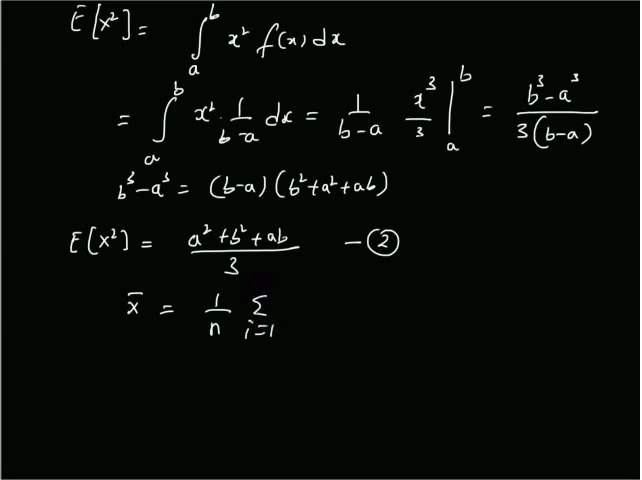 E[x²] = ∫ₐᵇ x² f(x) dx
= ∫ₐᵇ x² · 1/(b-a) dx = 1/(b-a) x³/3 |ₐᵇ = (b³-a³)/(3(b-a))
b³-a³ = (b-a)(b²+a²+ab)
E[x²] = (a²+b²+ab)/3 -②
x̄ = 1/n Σ i=1